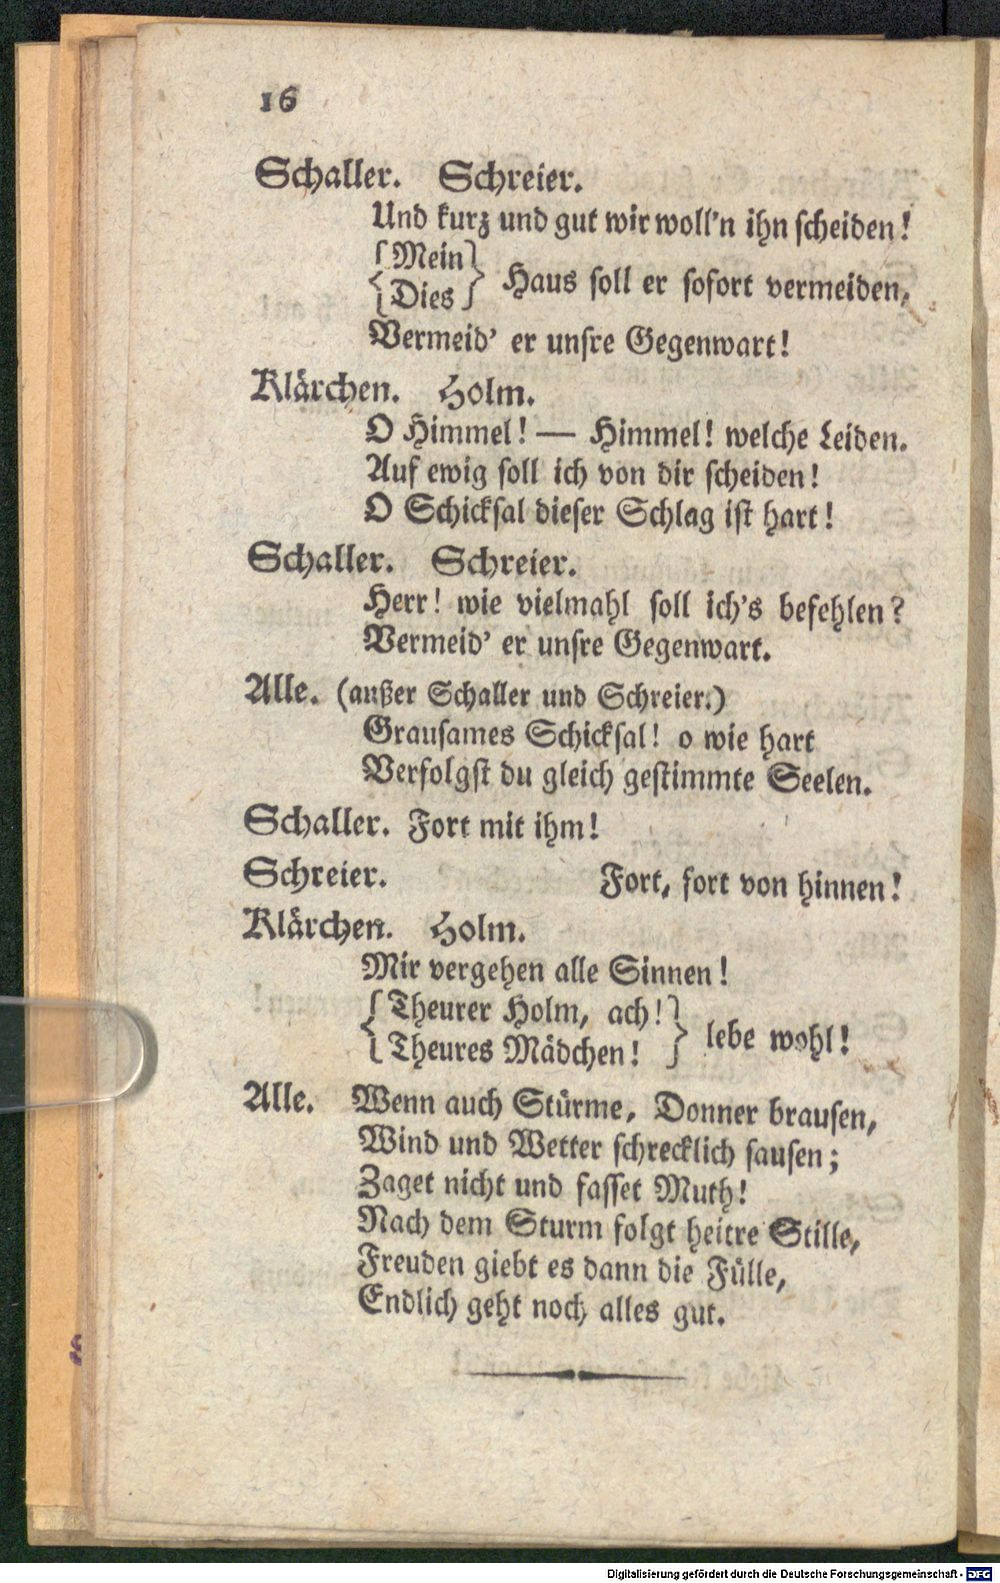 16
Schaller. Schreier.
Und kurz und gut wir woll'n ihn scheiden!
{Mein
Dies} Haus soll er sofort vermeiden,
Vermeid' er unsre Gegenwart!
Klärchen. Holm.
O Himmel! — Himmel! welche Leiden.
Auf ewig soll ich von dir scheiden!
O Schicksal dieser Schlag ist hart!
Schaller. Schreier.
Herr! wie vielmahl soll ich's befehlen?
Vermeid' er unsre Gegenwart.
Alle. (außer Schaller und Schreier.)
Grausames Schicksal! o wie hart
Verfolgst du gleich gestimmte Seelen.
Schaller. Fort mit ihm!
Schreier. Fort, fort von hinnen!
Klärchen. Holm.
Mir vergehen alle Sinnen!
{Theurer Holm, ach!
Theures Mädchen!} lebe wohl!
Alle. Wenn auch Stürme, Donner brausen,
Wind und Wetter schrecklich sausen;
Zaget nicht und fasset Muth!
Nach dem Sturm folgt heitre Stille,
Freuden giebt es dann die Fülle,
Endlich geht noch alles gut.
Digitalisierung gefördert durch die Deutsche Forschungsgemeinschaft - DFG